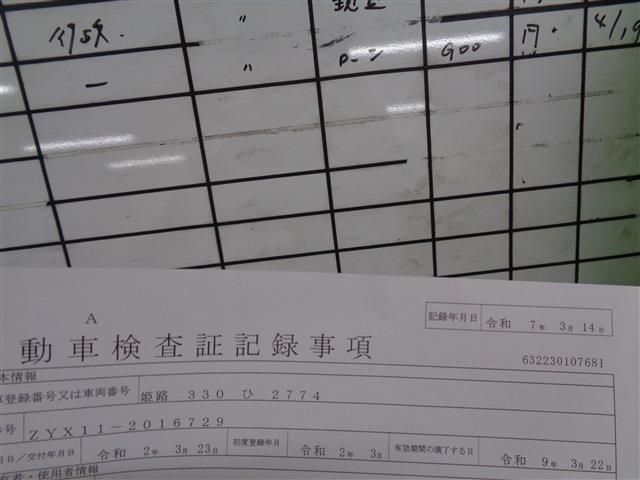 〃
ローン 900 円
A
記録年月日 令和 7年 3月14日
動車検査証記録事項
632230107681
本情報
登録番号又は車両番号 姫路 330 ひ 2774
番号 ZYX11-2016729
月日/交付年月日 令和 2年 3月23日 初度登録年月 令和 2年 3月 有効期間の満了する日 令和 9年 3月22日
有者・使用者情報